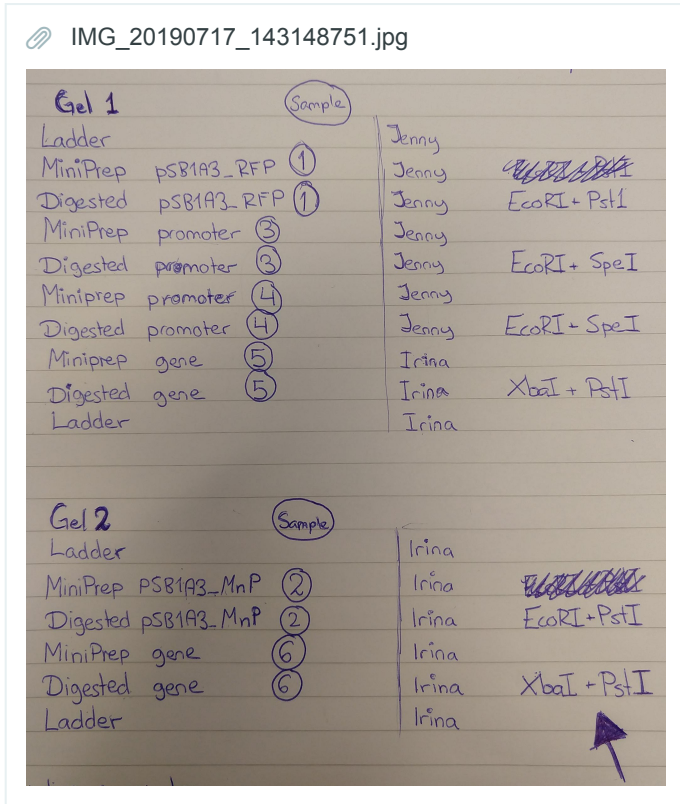 IMG_20190717_143148751.jpg
Gel 1 Sample
Ladder Jenny
MiniPrep pSB1A3_RFP 1 Jenny
Digested pSB1A3_RFP 1 Jenny EcoRI + Pst1
MiniPrep promoter 3 Jenny
Digested promoter 3 Jenny EcoRI + SpeI
Miniprep promoter 4 Jenny
Digested promoter 4 Jenny EcoRI + SpeI
Miniprep gene 5 Irina
Digested gene 5 Irina XbaI + PstI
Ladder Irina
Gel 2 Sample
Ladder Irina
MiniPrep pSB1A3_MnP 2 Irina
Digested pSB1A3_MnP 2 Irina EcoRI+PstI
MiniPrep gene 6 Irina
Digested gene 6 Irina XbaI + PstI
Ladder Irina